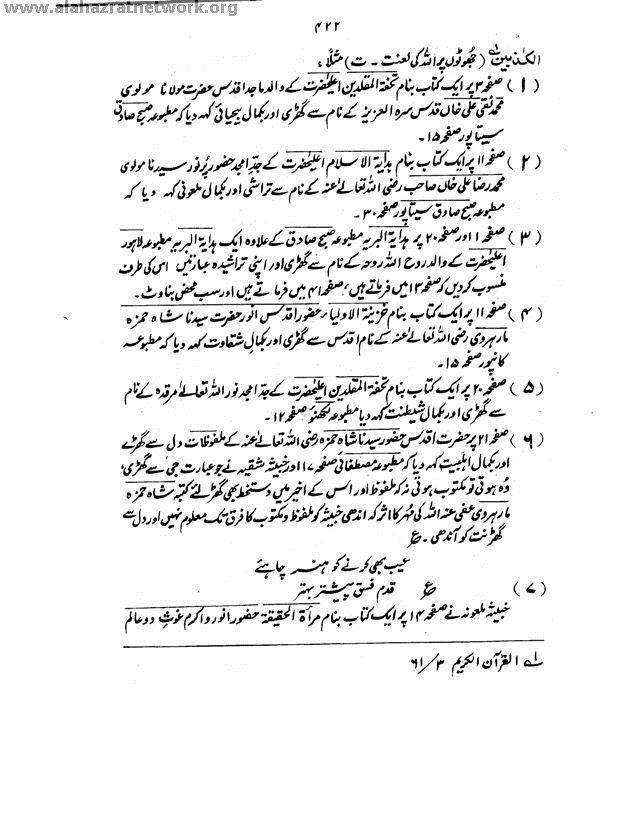 www.alahazratnetwork.org
۴۲۲
الکٰذبین۱؎ ( جھوٹوں پر اللہ کی لعنت ۔ ت) مثلاً :
( ۱ ) صفحہ ۳ پر ایک کتاب بنام تحفۃ المقلدین اعلیٰحضرت کے والد ماجد اقدس حضرت مولانا مولوی
محمد نقی علی خاں قدس سرہ العزیز کے نام سے گھڑی اور بکمال بیحیائی کہہ دیا کہ مطبوعہ صبح صادق
سیتاپور صفحہ ۱۵ ۔
( ۲ ) صفحہ ۱۱ پر ایک کتاب بنام ہدایۃ الاسلام اعلیٰحضرت کے جدِّ امجد حضور پُرنور سیدنا مولوی
محمد رضا علی خاں صاحب رضی اللہ تعالےٰ عنہ کے نام سے تراشی اور بکمال ملعونی کہہ دیا کہ
مطبوعہ صبح صادق سیتاپور صفحہ ۳۰ ۔
( ۳ ) صفحہ ۱۱ اور صفحہ ۲۰ پر ہدایۃ البریہ مطبوعہ صبح صادق کے علاوہ ایک ہدایۃ البریہ مطبوعہ لاہور
اعلیٰحضرت کے والد روح اللہ روحہ کے نام سے گھڑی اور اپنی تراشیدہ عبارتیں اس کی طرف
منسوب کردیں کو صفحہ ۱۳ میں فرماتے ہیں، صفحہ ۴۱ میں فرماتے ہیں اور سب محض بناوٹ ۔
( ۴ ) صفحہ ۱۱ پر ایک کتاب بنام خزینۃ الاولیاء حضور اقدس انور حضرت سیدنا شاہ حمزہ
مارہروی رضی اللہ تعالےٰ عنہ کے نام اقدس سے گھڑی اور بکمالِ شقاوت کہہ دیا کہ مطبوعہ
کانپور صفحہ ۱۵ ۔
( ۵ ) صفحہ ۲۰ پر ایک کتاب بنام تحفۃ المقلدین اعلیٰحضرت کے جدِّ امجد نور اللہ تعالےٰ مرقدہ کے نام
سے گھڑی اور بکمال شیطنت کہہ دیا مطبوعہ لکھنؤ صفحہ ۱۲ ۔
( ۶ ) صفحہ ۲۱ پر حضرت اقدس حضور سیدنا شاہ حمزہ رضی اللہ تعالےٰ عنہ کے ملفوظات دل سے گھڑے
اور بکمال ابلیسیت کہہ دیا کہ مطبوعہ مصطفائی صفحہ ۱۷ اور خبیثہ شقیہ نے جو عبارت جی سے گھڑی،
وُہ ہوتی تو مکتوب ہوتی نہ کہ ملفوظ اور اس کے اخیر میں دستخط بھی گھڑ لئے کتبہ شاہ حمزہ
مارہروی عفی عنہ اللہ کی مُہر کا اثر کہ اندھی خبیثہ کو ملفوظ و مکتوب کا فرق تک معلوم نہیں اور دل سے
گھڑنت کو آندھی ۔ ع
عیب بھی کرنے کو ہنر چاہئے
( ۷ ) ع قدم فسق پیشتر بہتر
خبیثہ ملعونہ نے صفحہ ۱۴ پر ایک کتاب بنام مرأۃ الحقیقۃ حضور انور و اکرم غوثِ دوعالم
۱؎ القرآن الکریم ۳/ ۶۱